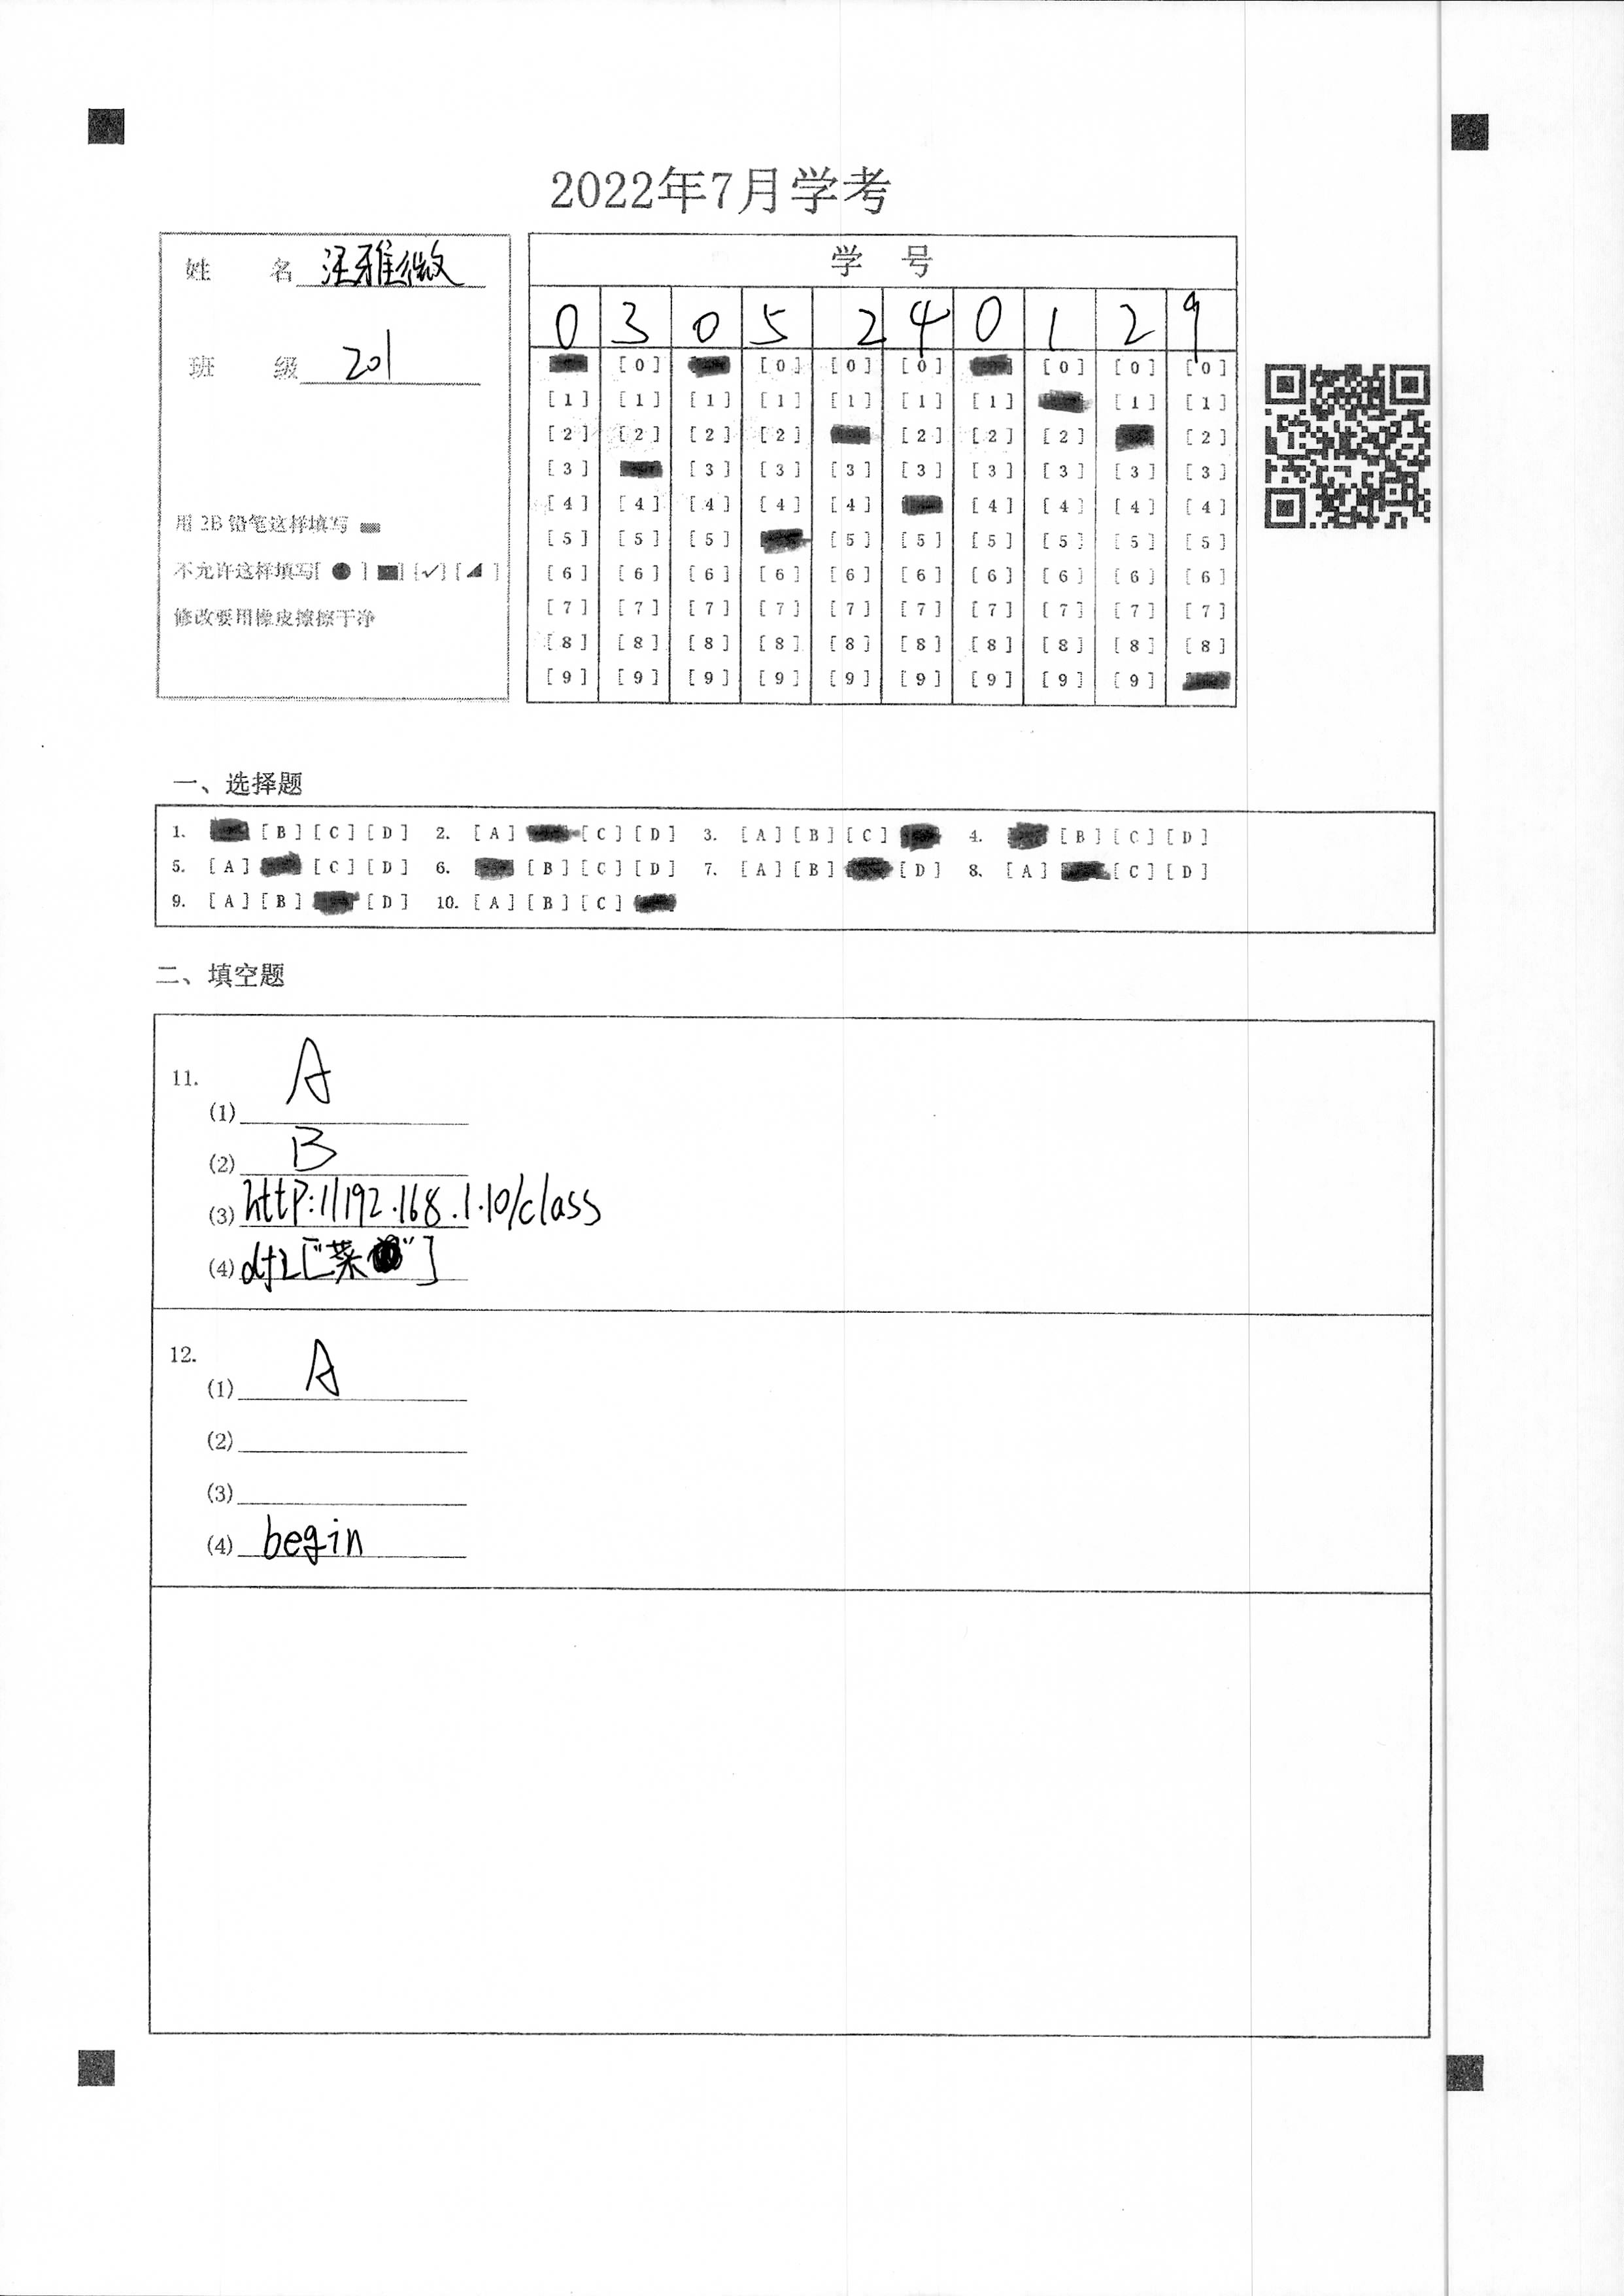 2022年7月学考
姓 名 汪雅微
班 级 201
用 2B 铅笔这样填写
不允许这样填写[ ● ] [■] [✓] [◢ ]
修改要用橡皮擦擦干净
学 号
0 3 0 5 2 4 0 1 2 9
[0] [0] [0] [0] [0] [0] [0]
[1] [1] [1] [1] [1] [1] [1] [1] [1]
[2] [2] [2] [2] [2] [2] [2] [2]
[3] [3] [3] [3] [3] [3] [3] [3] [3]
[4] [4] [4] [4] [4] [4] [4] [4] [4]
[5] [5] [5] [5] [5] [5] [5] [5] [5]
[6] [6] [6] [6] [6] [6] [6] [6] [6] [6]
[7] [7] [7] [7] [7] [7] [7] [7] [7] [7]
[8] [8] [8] [8] [8] [8] [8] [8] [8] [8]
[9] [9] [9] [9] [9] [9] [9] [9] [9]
一、选择题
1. [B] [C] [D] 2. [A] [C] [D] 3. [A] [B] [C] 4. [B] [C] [D]
5. [A] [C] [D] 6. [B] [C] [D] 7. [A] [B] [D] 8. [A] [C] [D]
9. [A] [B] [D] 10. [A] [B] [C]
二、填空题
11.
(1) A
(2) B
(3) http://192.168.1.10/class
(4) df2["菜"]
12.
(1) A
(2)
(3)
(4) begin